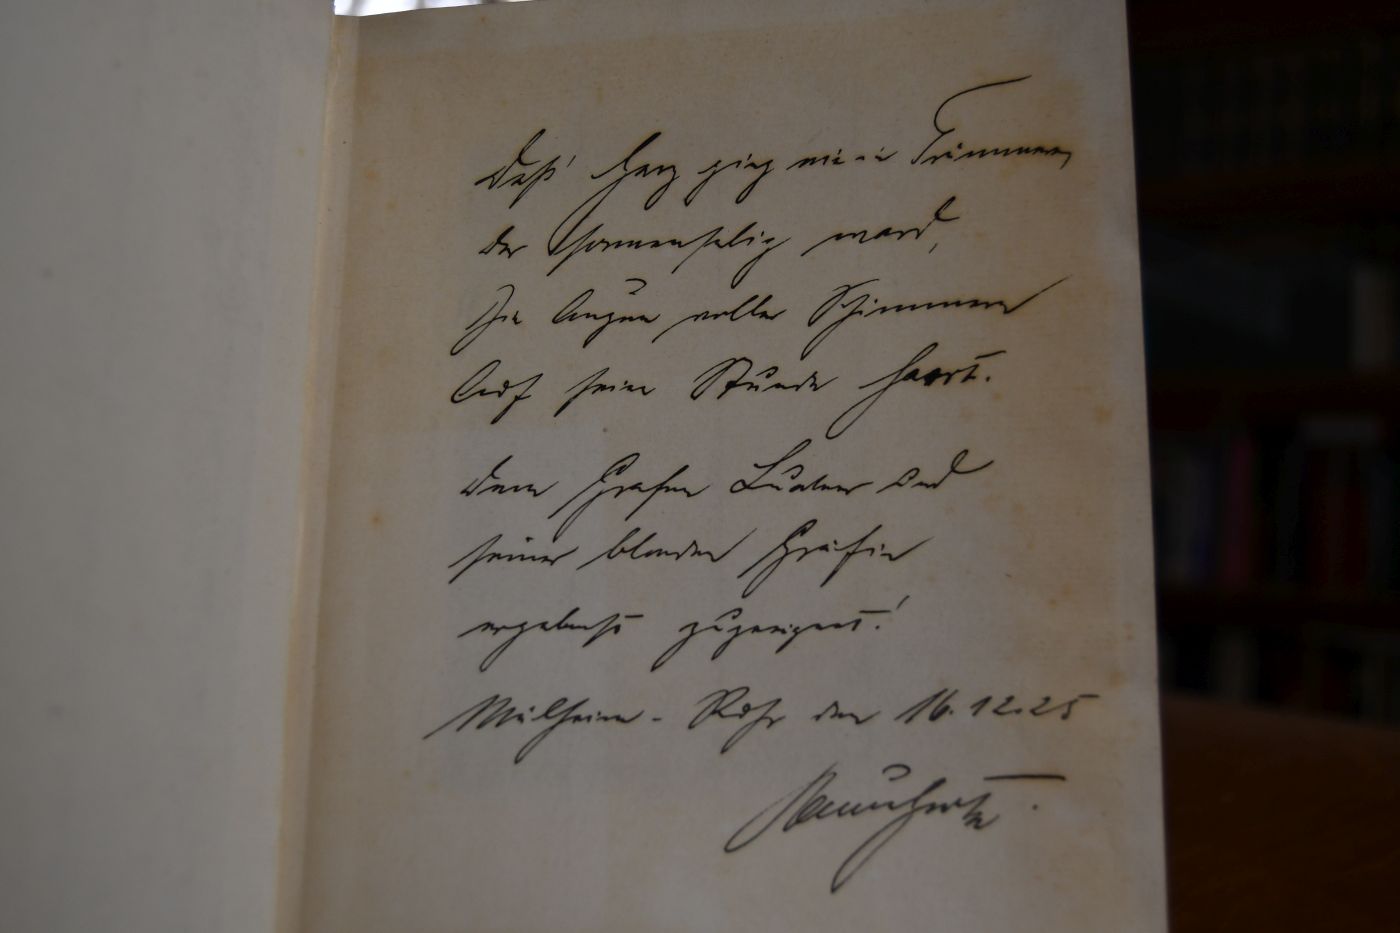 Deß' Herz ging nie in Trümmer,
der sonnenselig ward,
Die Augen voller Schimmer
Auf seine Stunde harrt.
Dem Grafen Luckner und
seiner blonden Gräfin
ergebenst zugeeignet!
Mülheim-Ruhr den 16.12.25